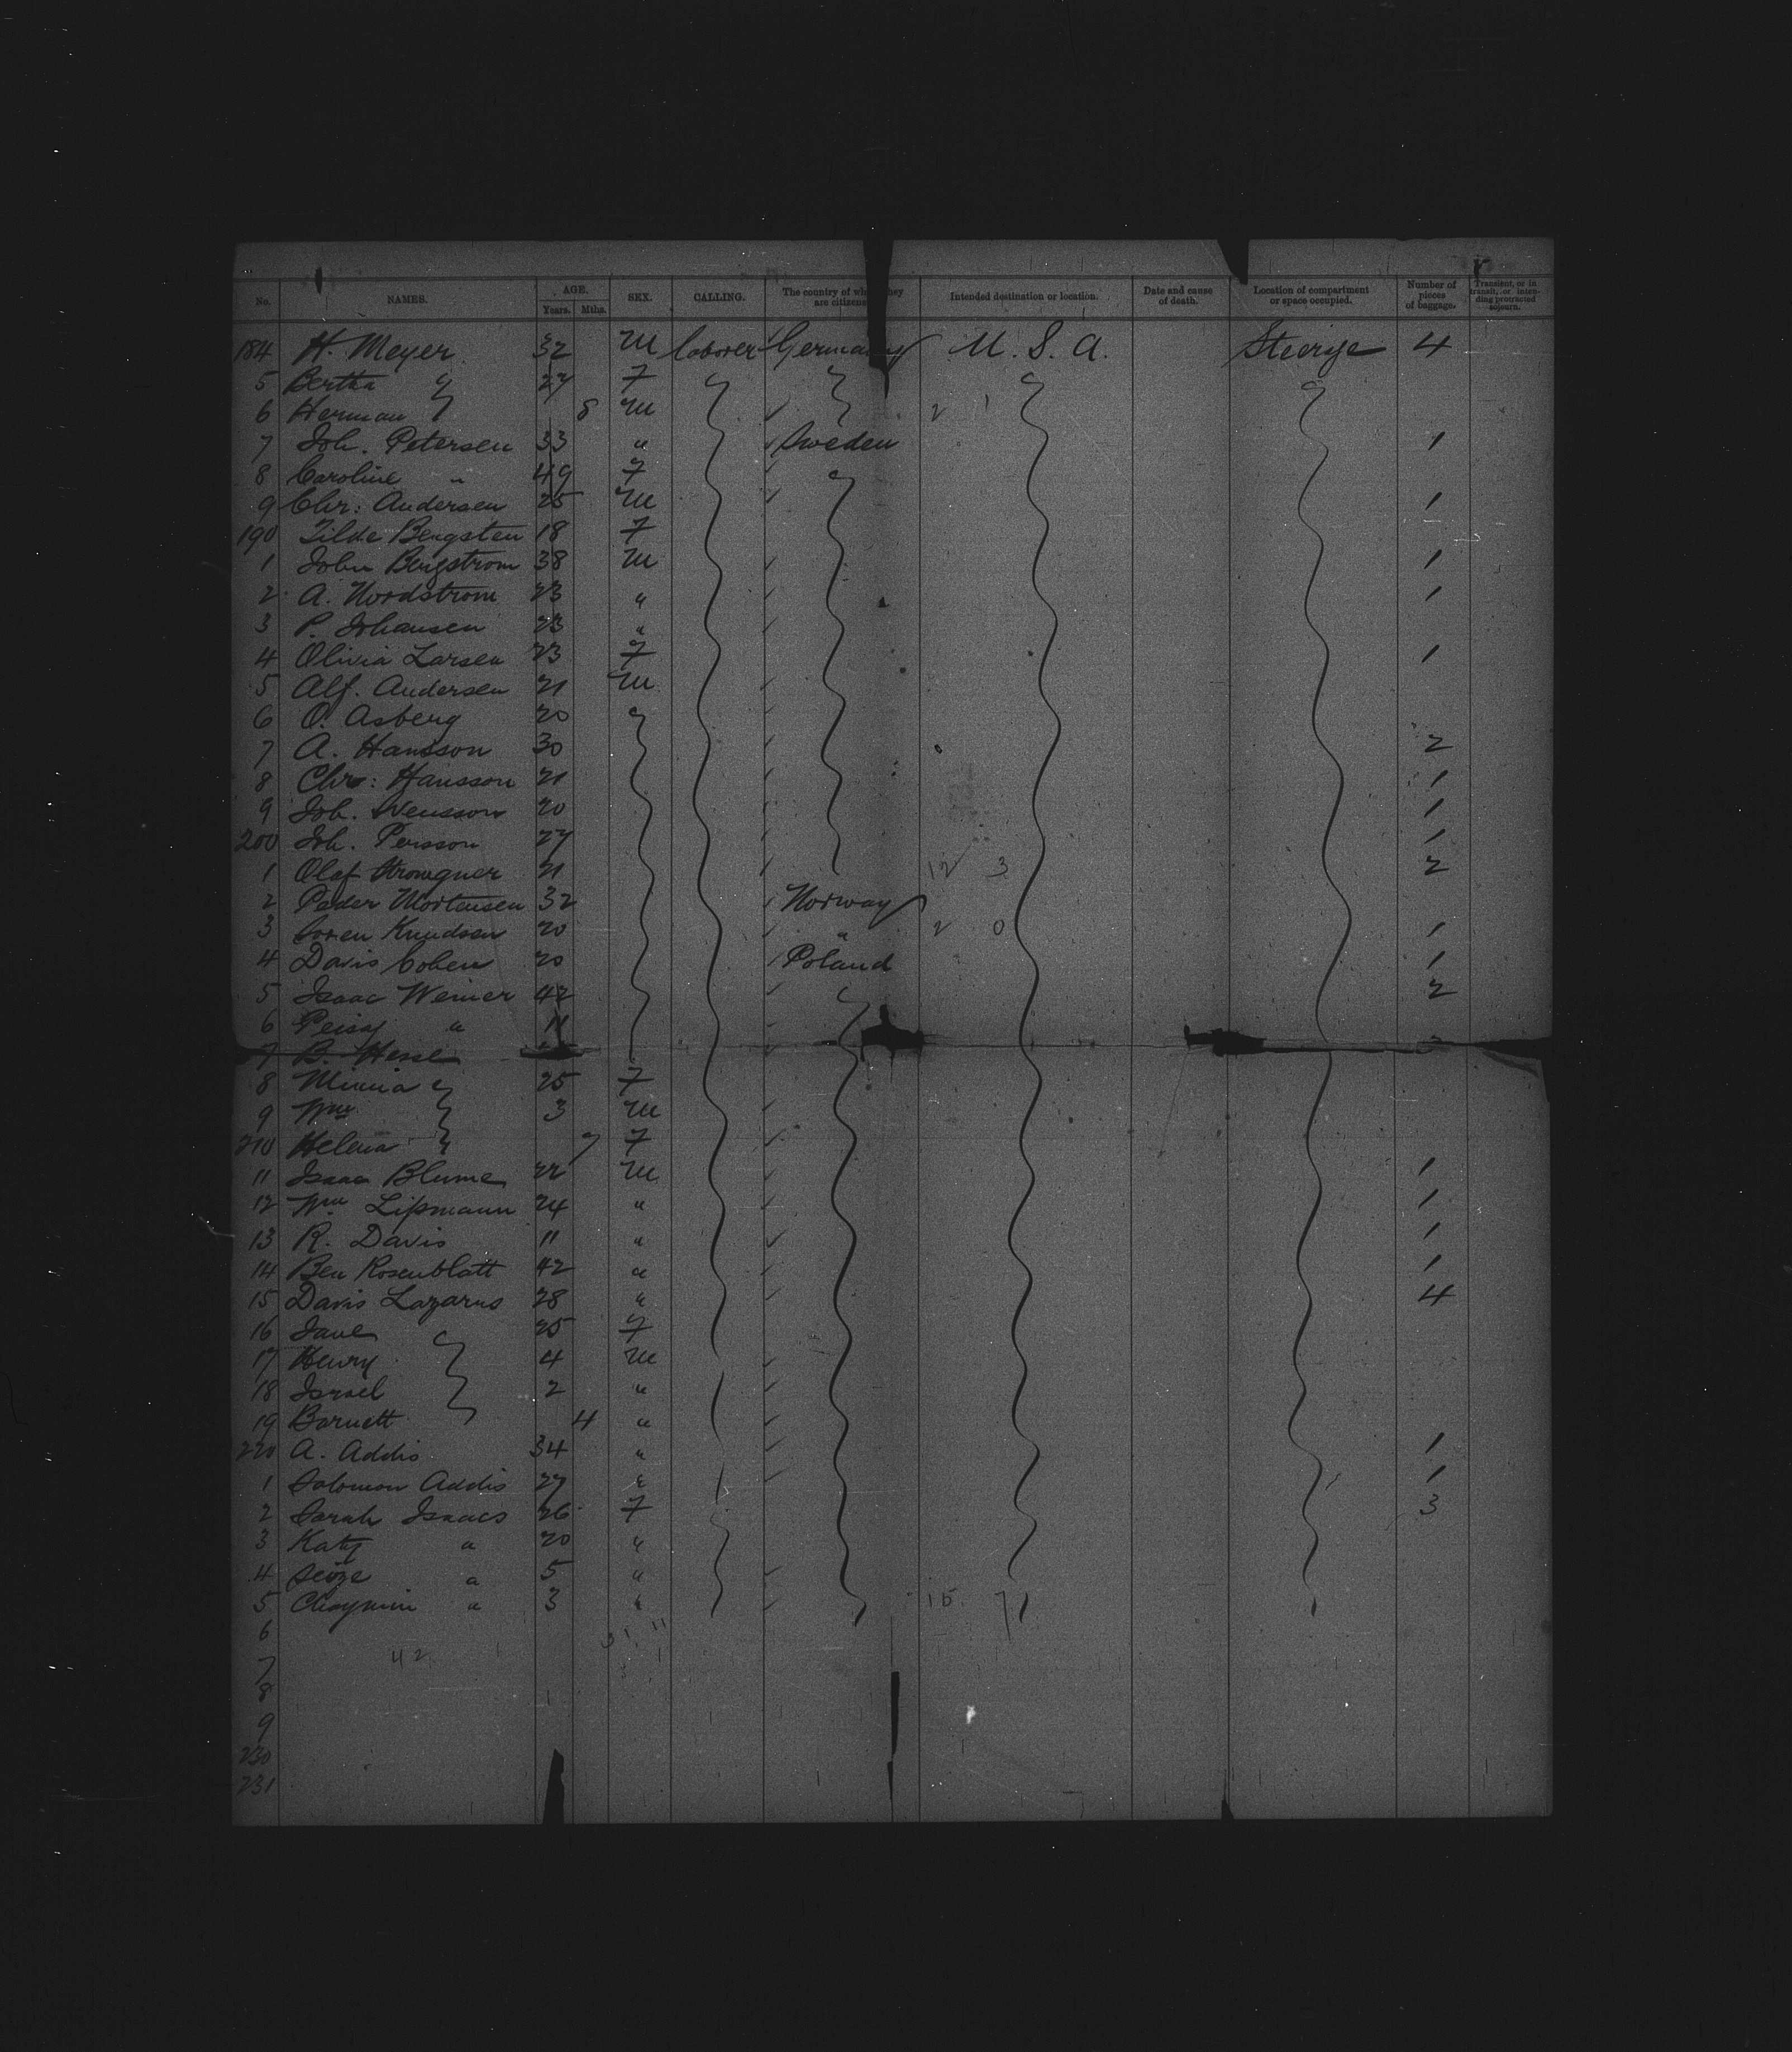 No. NAMES. AGE. Years. Mths. SEX. CALLING. The country of which they are citizens Intended destination or location. Date and cause of death. Location of compartment or space occupied. Number of pieces of baggage. Transient, or in transit, or intending protracted sojourn.
184 H. Meyer 32 M laborer Germany U. S. A. Steerage 4
5 Bertha 27 F
6 Herman 8 M 2 1
7 Joh. Petersen 33 " Sweden 1
8 Caroline " 49 F
9 Chr: Andersen 25 M 1
190 Tilda Bengsten 18 F
1 John Bergstrom 38 M 1
2 A. Nordstrom 23 " 1
3 P. Johansen 23 "
4 Olivia Larsen 23 F 1
5 Alf. Andersen 21 M
6 O. Asberg 20
7 A. Hansson 30 2
8 Chr: Hansson 21 1
9 Joh. Svensson 20 1
200 Joh. Persson 27 1
1 Olaf 21 12 3 2
2 Peder Mortensen 32 Norway
3 Soren Knudsen 20 " 2 0 1
4 Davis Cohen 20 Poland 1
5 Isaac Weiner 42 2
6 " 11
7 B. Hesse
8 Minnia 25 F
9 Wm 3 M
210 Helena 7 F
11 Isaac Blume 22 M 1
12 Wm Lipmann 24 " 1
13 R. Davis 11 " 1
14 Ben Rosenblatt 42 " 1
15 Davis Lazarus 28 " 4
16 Jane 25 F
17 Henry 4 M
18 Israel 2 "
19 Barnett 4 "
220 A. Addis 34 " 1
1 Solomon Addis 27 " 1
2 Sarah Isaacs 26 F 3
3 Katy " 20 "
4 " 5 "
5 " 3 " 15 7
6 31 11
7 42
8
9
230
231